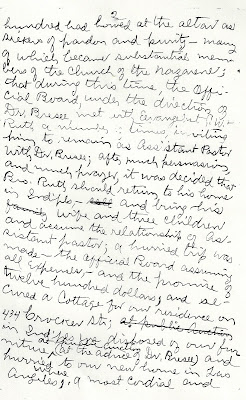 2
hundred had bowed at the altar as
seekers of pardon and purity - many
of which became substantial mem
bers of the Church of the Nazarene;
that during this time the Offi-
cial Board under the direction of
Dr. Bresee met with evangelist
Ruth a number of times, inviting
him to remain as Assistant Pastor
with Dr. Bresee; after much persuasion,
and much prayer, it was decided that
Bro. Ruth should return to his home
in Indpls- and bring his
family wife and three children
and assume the relationship of As-
sistant pastor; a hurried trip was
made - the Official Board assuming
all expenses, - and the promise of
twelve hundred dollars, and se-
cured a Cottage for our residence on
434 Crocker St; at public auction
in Indpls disposed of our fur
niture (at the advice of Dr. Bresee) and
hurried to our new home in Los
Angeles; a most cordial and